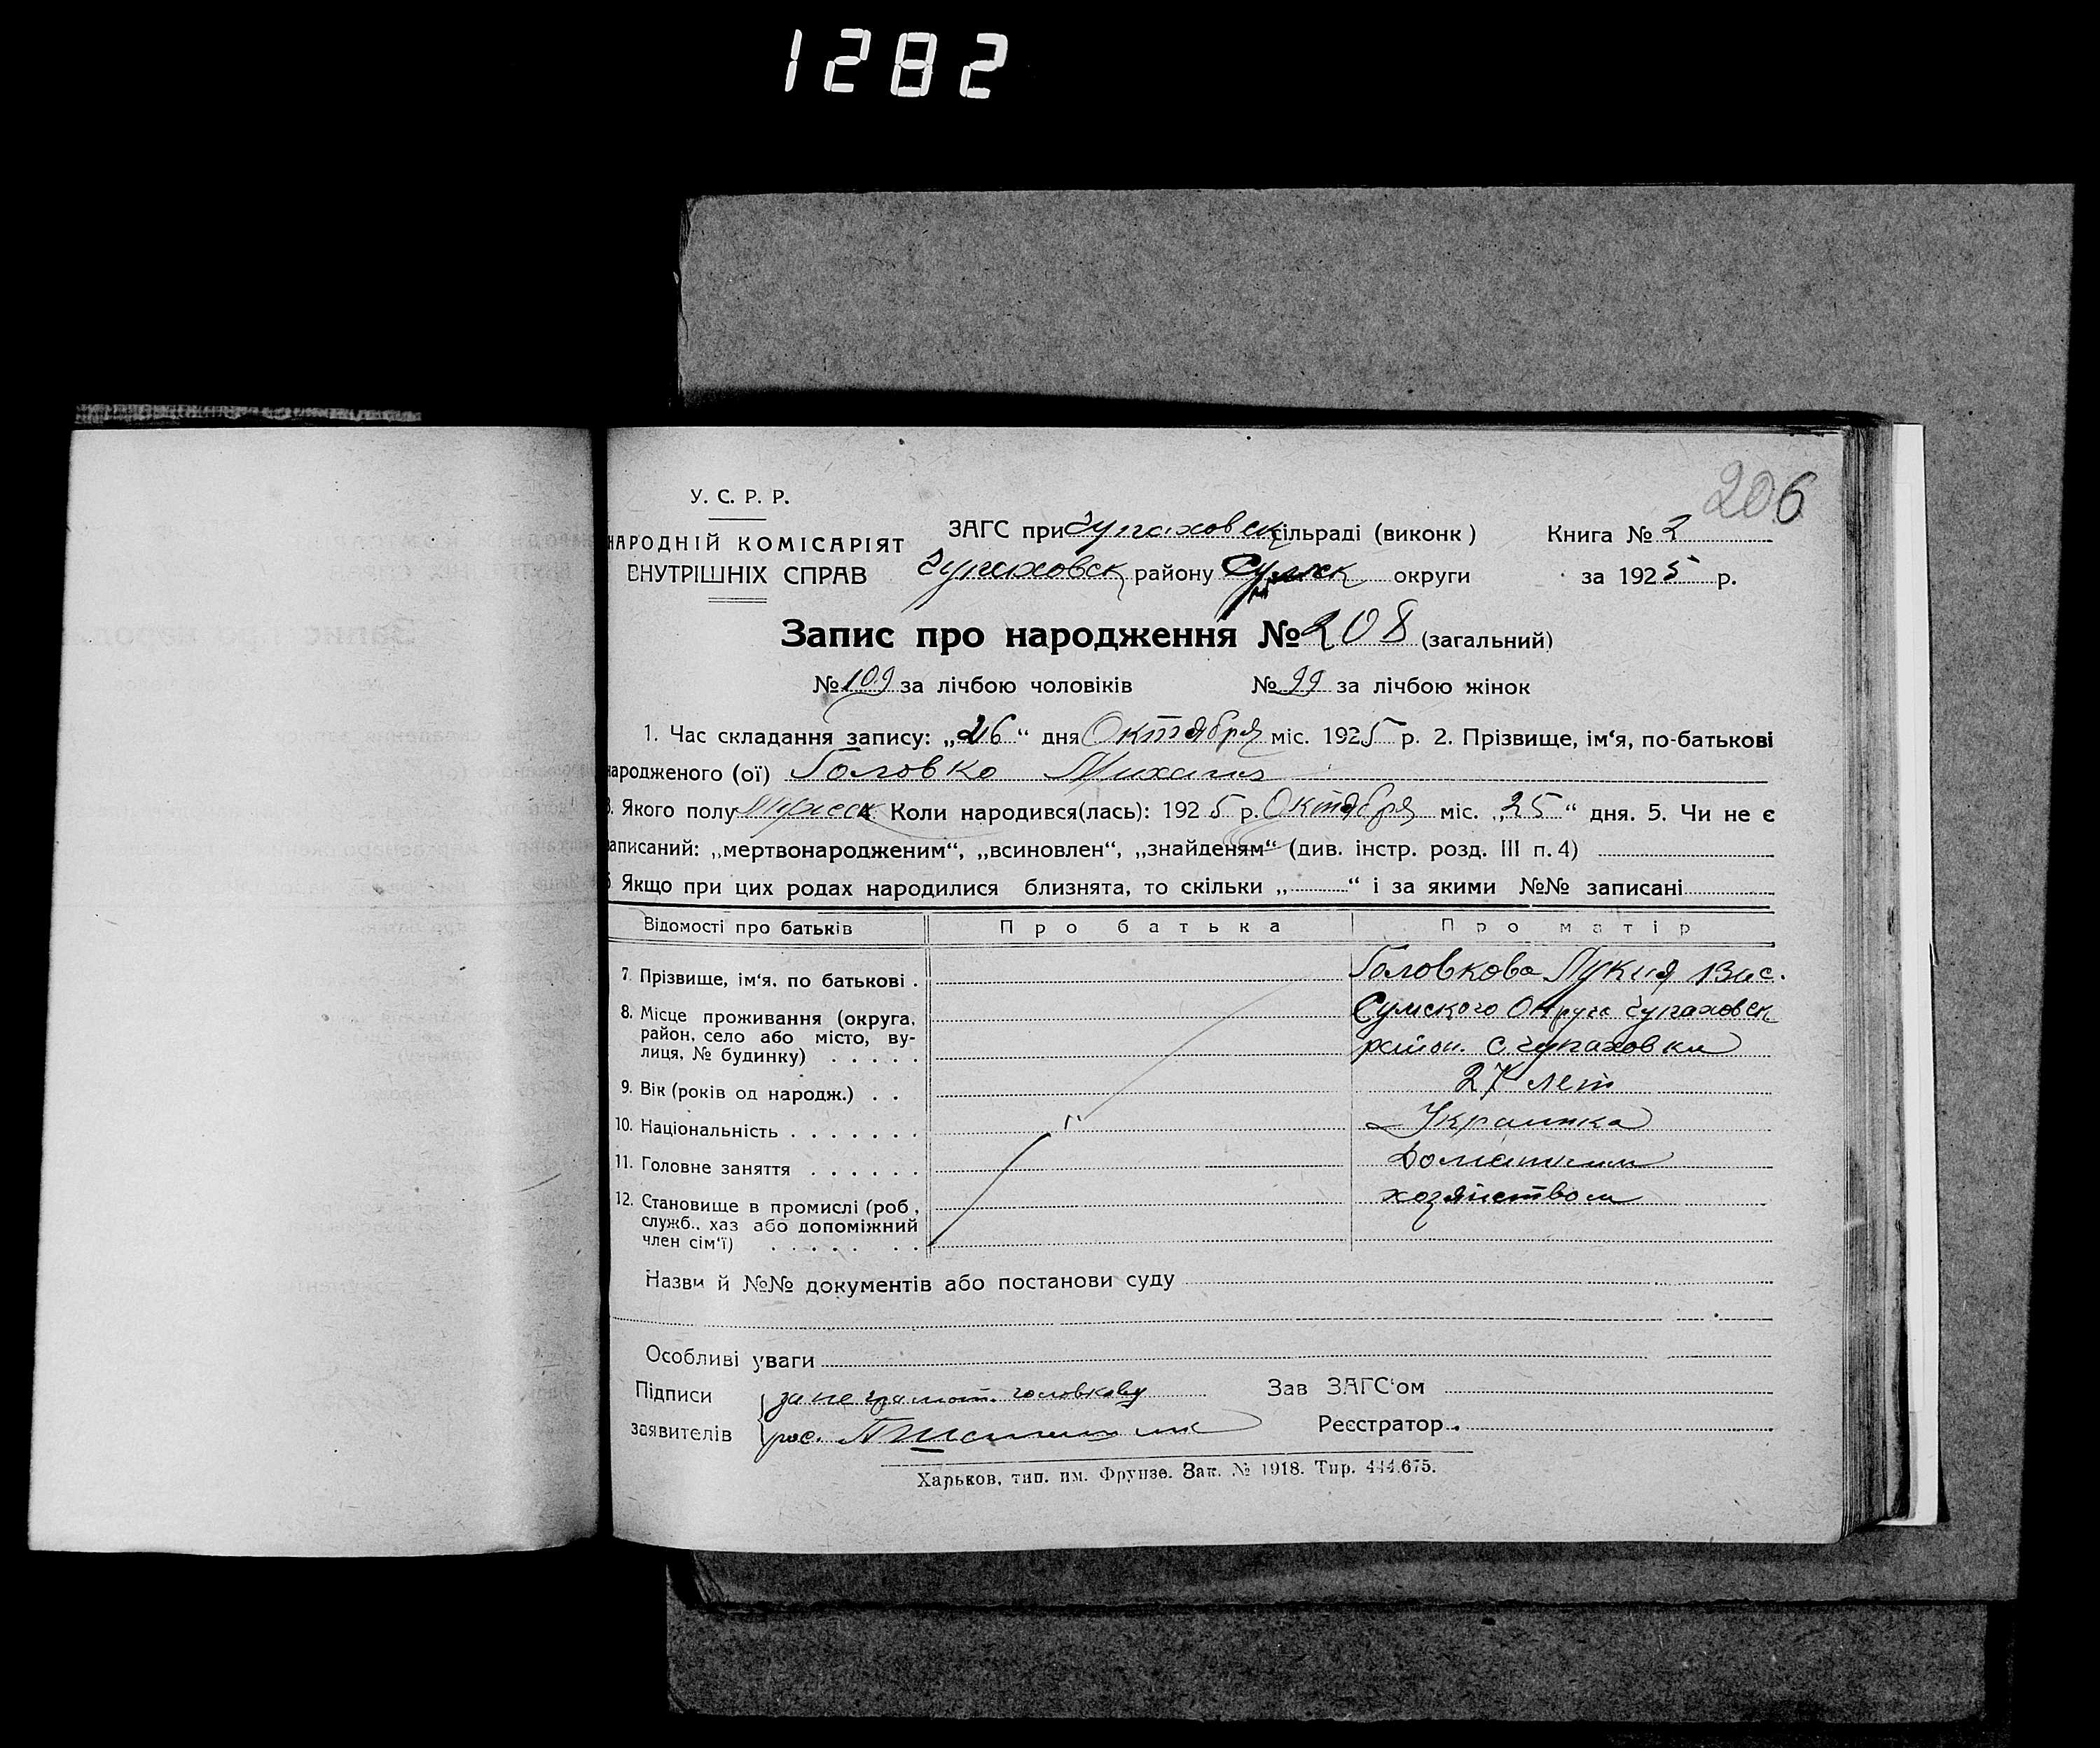 1282
206
У. С. Р. Р.
НАРОДНІЙ КОМІСАРІЯТ
ВНУТРІШНІХ СПРАВ
ЗАГС при Чупаховск сільраді (виконк) Книга № 2
Чупаховск району Сумск округи за 1925 р.
Запис про народження № 208 (загальний)
№ 109 за лічбою чоловіків № 99 за лічбою жінок
1. Час складання запису: „26“ дня Октября міс. 1925 р. 2. Прізвище, ім‘я, по-батькові
народженого (ої) Головко Михаил
3. Якого полу Мужск 4. Коли народився(лась): 1925 р. Октября міс. „25“ дня. 5. Чи не є
записаний: „мертвонародженим“, „всиновлен“, „знайденям“ (див. інстр. розд. III п. 4)
6 Якщо при цих родах народилися близнята, то скільки „ “ і за якими №№ записані
Відомості про батьків Про батька Про матір
7. Прізвище, ім‘я, по батькові . Головкова Лукия Вас.
8. Місце проживання (округа, Сумского Округа Чупаховск
район, село або місто, ву-
лиця, № будинку) . . . . . район. с. Чупаховки
9. Вік (років од народж.) . . 27 лет
10. Національність . . . . . . . Украинка
11. Головне заняття . . . . . . Домашним
12. Становище в промислі (роб., хозяйством
служб., хаз або допоміжний
член сім‘ї) . . . . . . .
Назви й №№ документів або постанови суду
Особливі уваги
Підписи за неграмот. Головкову Зав ЗАГС‘ом
заявителів рос. Реєстратор .
Харьков, тип. им. Фрунзе. Зак. № 1918. Тир. 444.675.